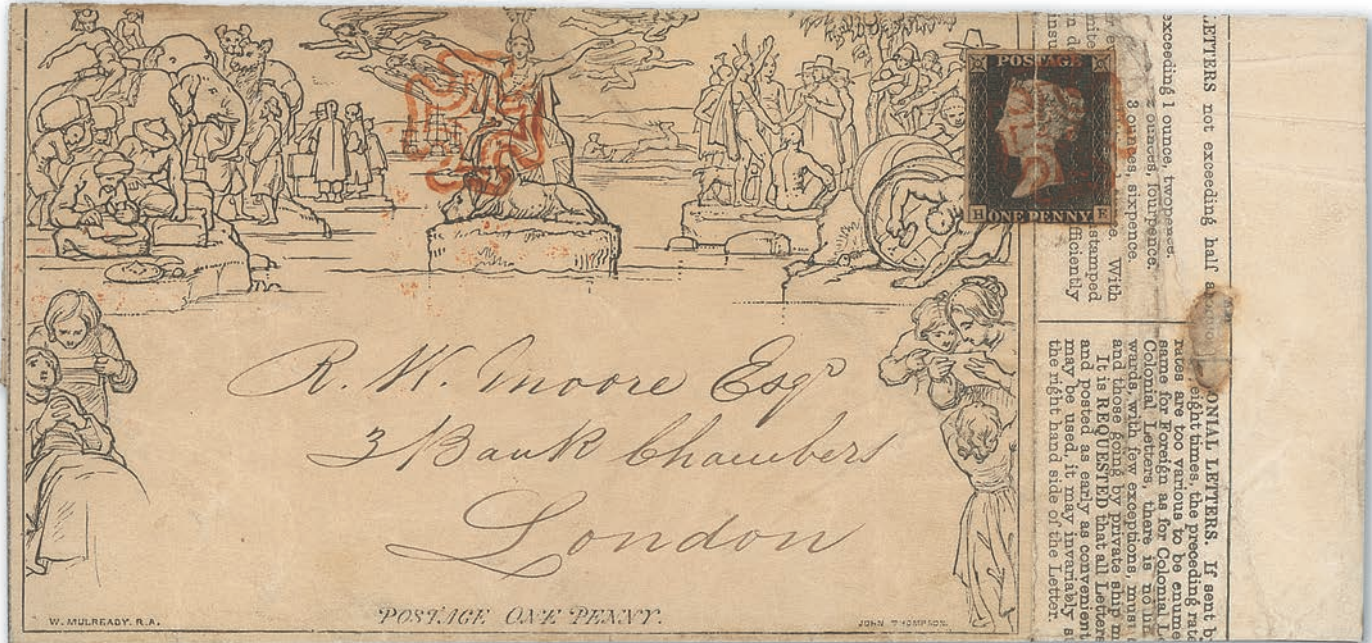 POSTAGE
H ONE PENNY K
R. W. Moore Esqr
3 Bank Chambers
London
POSTAGE ONE PENNY.
W. MULREADY. R.A.
JOHN THOMPSON.
LETTERS not exceeding half a
exceeding 1 ounce, twopence.
2 ounces, fourpence.
3 ounces, sixpence.
With
stamped
fficiently
ONIAL LETTERS. If sent b
eight times, the preceding rat
rates are too various to be enume
same for Foreign as for Colonial L
Colonial Letters, there is no lim
wards, with few exceptions, must
and those going by private ship m
It is REQUESTED that all Letters
and posted as early as convenient
may be used, it may invariably
the right hand side of the Letter.